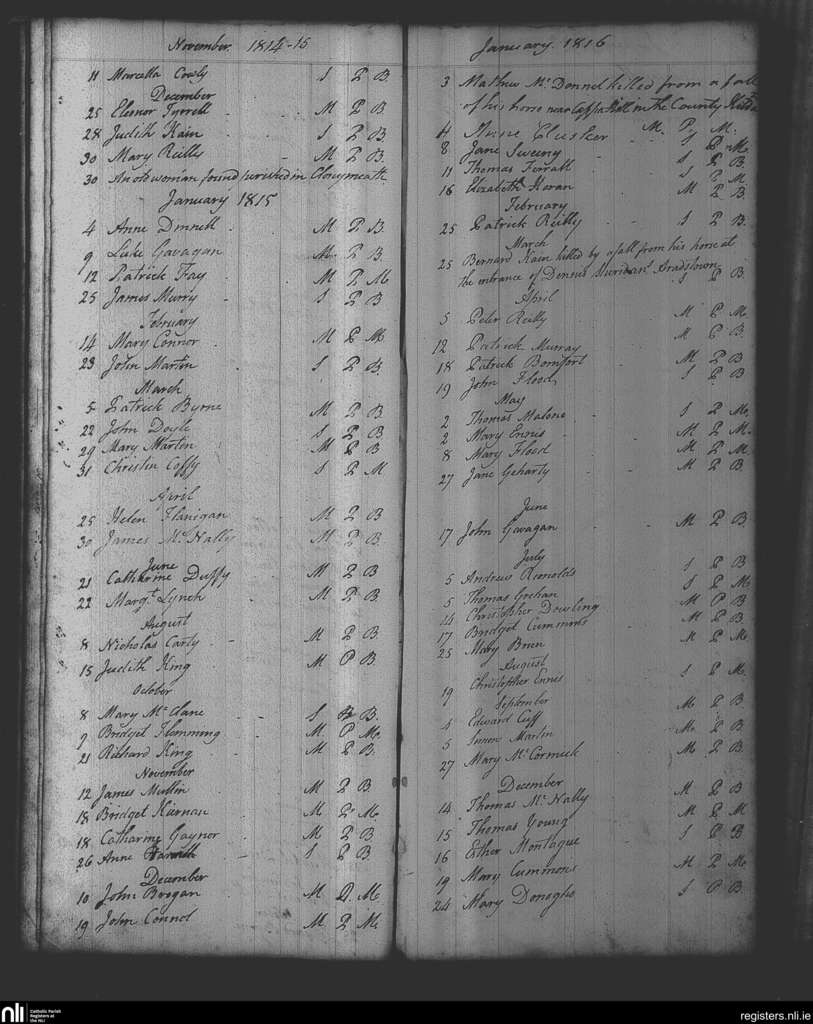 November. 1814-15
11 Marcella Cosly S P B.
December
25 Eleonor Tyrrell M P B.
28 Judith Kain S P B.
30 Mary Reilly M P B.
30 An old woman found perished in Clonymeath
January 1815
4 Anne Dinnell M P B.
9 Luke Gavagan M. P B.
12 Patrick Fay M P M
25 James Murry S P B
February
14 Mary Connor M P M
23 John Martin S P B.
March
5 Patrick Byrne M P B
22 John Doyle S P B
29 Mary Martin M P B
31 Christin Coffy S P M
April
25 Helen Flanigan M P B.
30 James McNally M P B.
June
21 Catharine Duffy M P B
22 Margt Lynch M P B
August
8 Nicholas Carty M P B
15 Judith King M P B.
October
8 Mary McClane S P B.
9 Bridget Flemming M P M.
21 Richard King M P B.
November
12 James Mullin M P B
18 Bridget Kiernan M P M
18 Catharine Gaynor M P B
26 Anne Farrell S P B
December
10 John Brogan M P. M.
19 John Connol M P M.
January. 1816
3 Mathew McDonnel killed from a fall
of his horse near in the County
4 Anne Clusker M. P. M.
8 Jane Sweeny S P M.
11 Thomas Farrall S P B
16 Elizabeth Horan S P M
M P B.
February
25 Patrick Reilly S P B.
March
25 Bernard Kain killed by a fall from his horse at
the entrance of Dennis Aradstown S P B
April
5 Peter Reilly M P M
12 Patrick Murray M P B.
18 Patrick Bomfort M P B
19 John Flood S P B
May
2 Thomas Malone S P M.
2 Mary Ennis M P M.
8 Mary Flood M P M
27 Jane Geharty M P B
June
17 John Gavagan M P B.
July
5 Andrew Rienolds S P B
5 Thomas Grehan S P M
14 Christopher Dowling M P B
17 Bridget Cummins M P B
25 Mary Brien M P M
August
19 Christopher Ennis S P M.
September
4 Edward Cuff M P B
5 Simon Martin M. P B
27 Mary McCormick M P B
December
14 Thomas McNally M P B
15 Thomas Young M P M
16 Esther Montague S P B
19 Mary Cummons M P M.
24 Mary Donoghe S P B
nli
Catholic Parish
Registers at
the NLI
registers.nli.ie